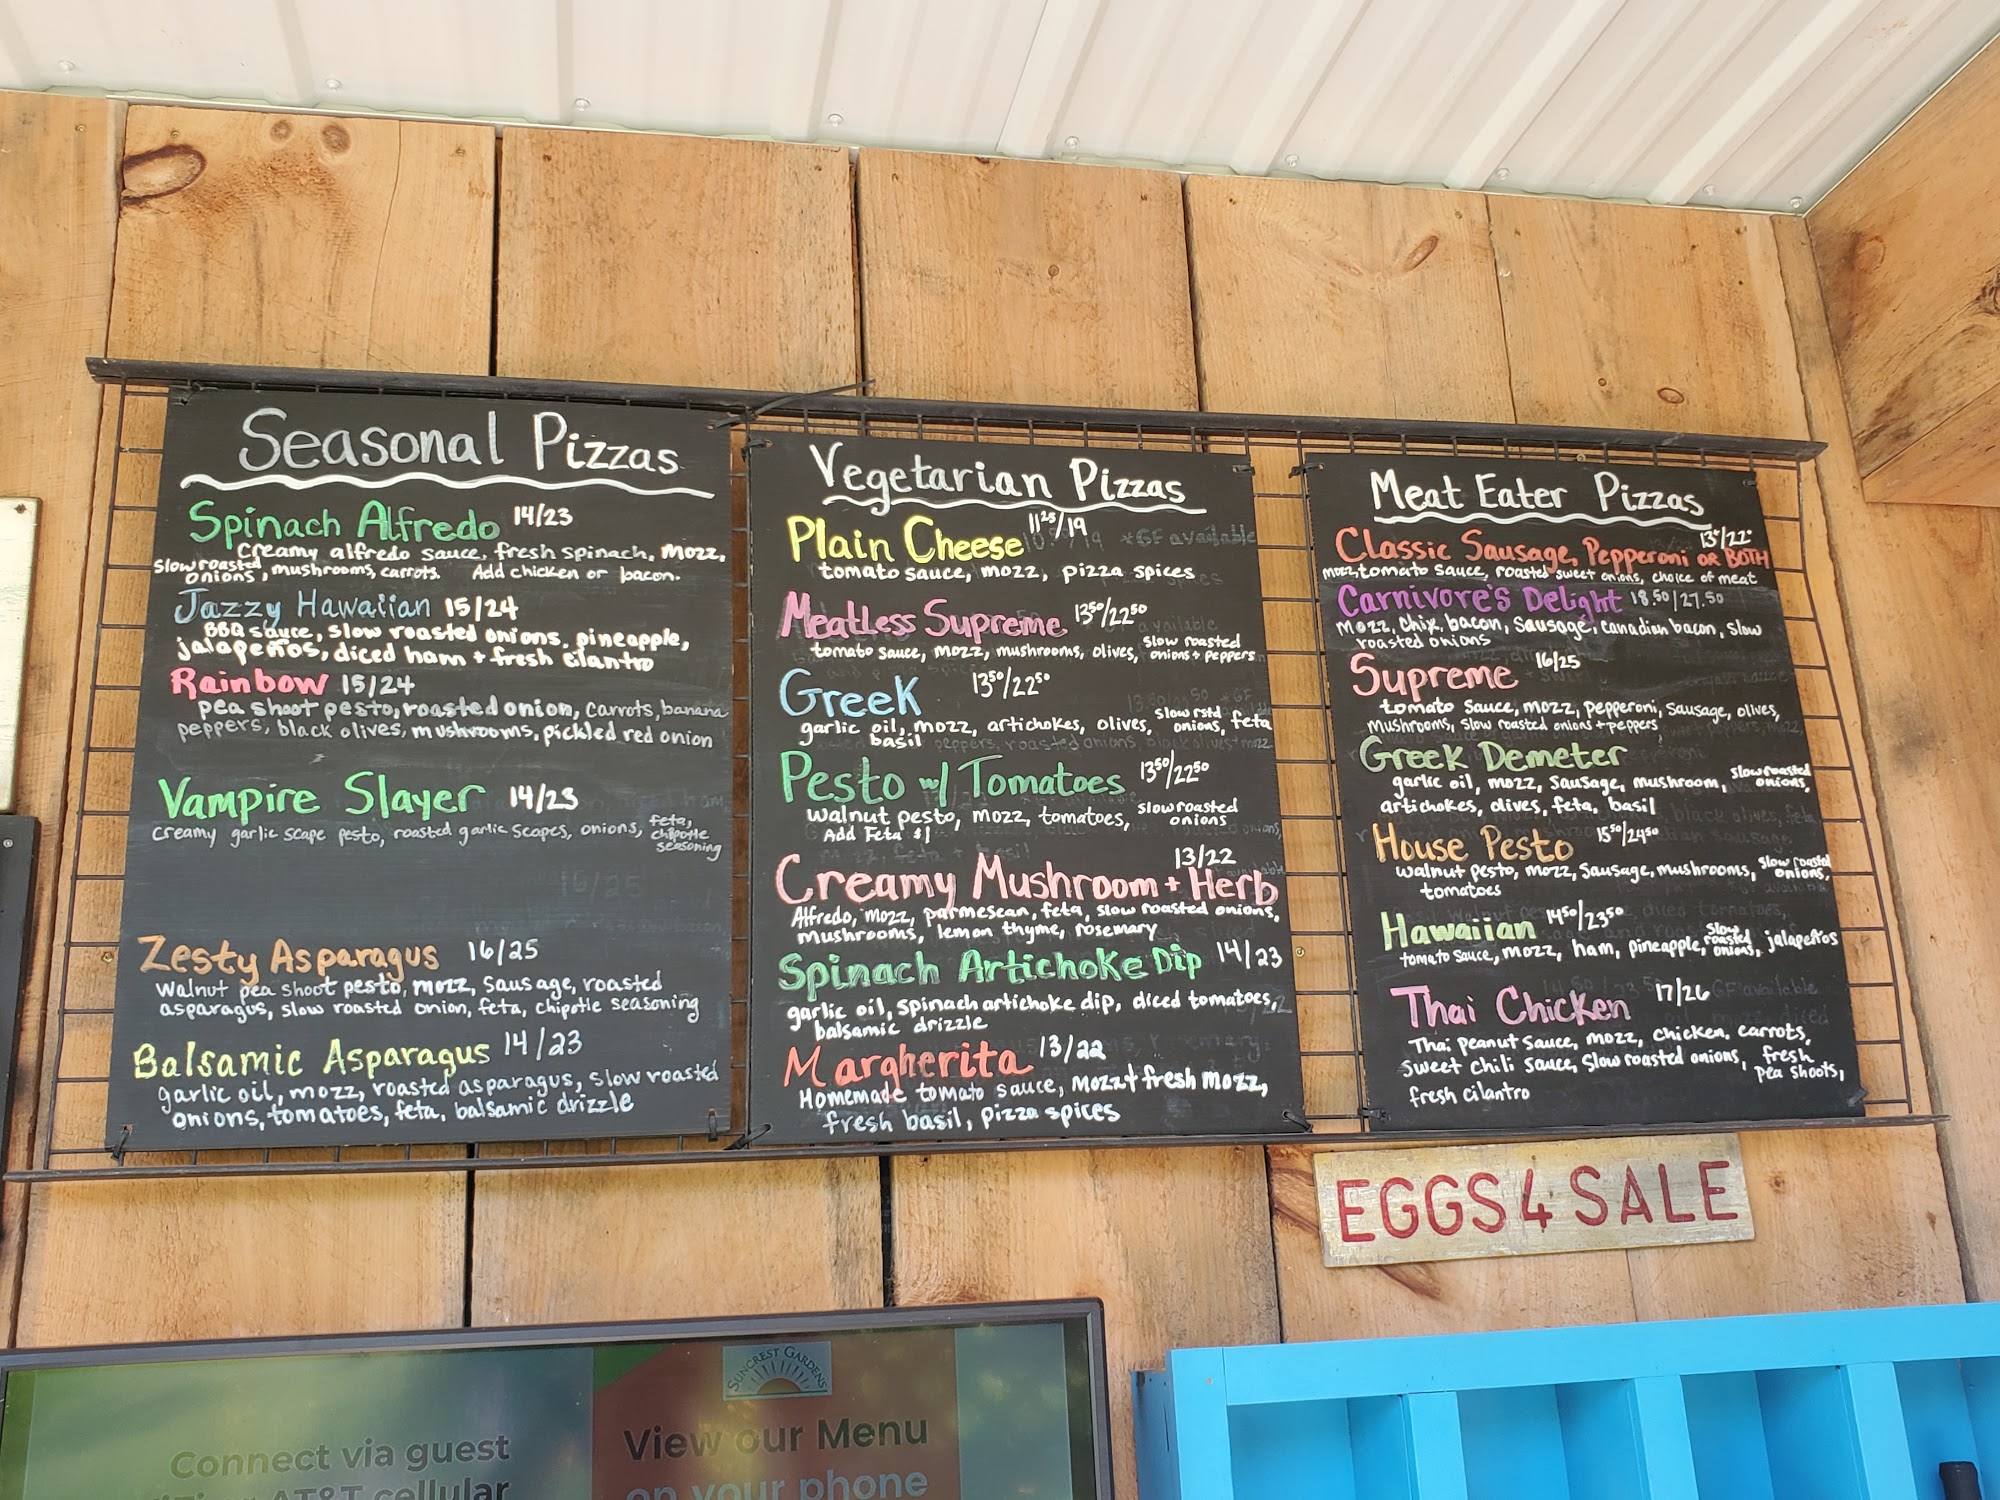 Seasonal Pizzas
Spinach Alfredo 14/23
Creamy alfredo sauce, fresh spinach, mozz,
slow roasted onions, mushrooms, carrots. Add chicken or bacon.
Jazzy Hawaiian 15/24
BBQ sauce, slow roasted onions, pineapple,
jalapeños, diced ham + fresh cilantro
Rainbow 15/24
pea shoot pesto, roasted onion, carrots, banana
peppers, black olives, mushrooms, pickled red onion
Vampire Slayer 14/23
creamy garlic scape pesto, roasted garlic scapes, onions, feta, chipotle seasoning
Zesty Asparagus 16/25
walnut pea shoot pesto, mozz, sausage, roasted
asparagus, slow roasted onion, feta, chipotle seasoning
Balsamic Asparagus 14/23
garlic oil, mozz, roasted asparagus, slow roasted
onions, tomatoes, feta, balsamic drizzle
Vegetarian Pizzas
Plain Cheese 11.25/19
tomato sauce, mozz, pizza spices
Meatless Supreme 13.50/22.50
tomato sauce, mozz, mushrooms, olives, slow roasted onions + peppers
Greek 13.50/22.50
garlic oil, mozz, artichokes, olives, slow rstd onions, feta
basil
Pesto w/ Tomatoes 13.50/22.50
walnut pesto, mozz, tomatoes, slow roasted onions
Add Feta $1
Creamy Mushroom + Herb 13/22
Alfredo, mozz, parmesean, feta, slow roasted onions,
mushrooms, lemon thyme, rosemary
Spinach Artichoke Dip 14/23
garlic oil, spinach artichoke dip, diced tomatoes,
balsamic drizzle
Margherita 13/22
Homemade tomato sauce, mozz + fresh mozz,
fresh basil, pizza spices
Meat Eater Pizzas
Classic Sausage, Pepperoni OR BOTH
mozz, tomato sauce, roasted sweet onions, choice of meat
Carnivore's Delight 18.50/27.50
mozz, chix, bacon, sausage, canadian bacon, slow
roasted onions
Supreme 16/25
tomato sauce, mozz, pepperoni, sausage, olives,
mushrooms, slow roasted onions + peppers
Greek Demeter
garlic oil, mozz, sausage, mushroom, slow roasted onions,
artichokes, olives, feta, basil
House Pesto 15.50/24.50
walnut pesto, mozz, sausage, mushrooms, slow roasted onions,
tomatoes
Hawaiian 14.50/23.50
tomato sauce, mozz, ham, pineapple, slow roasted onions, jalapeños
Thai Chicken 17/26
Thai peanut sauce, mozz, chicken, carrots,
sweet chili sauce, slow roasted onions, fresh pea shoots,
fresh cilantro
EGGS 4 SALE
SUNCREST GARDENS
Connect via guest
AT&T cellular
View our Menu
on your phone